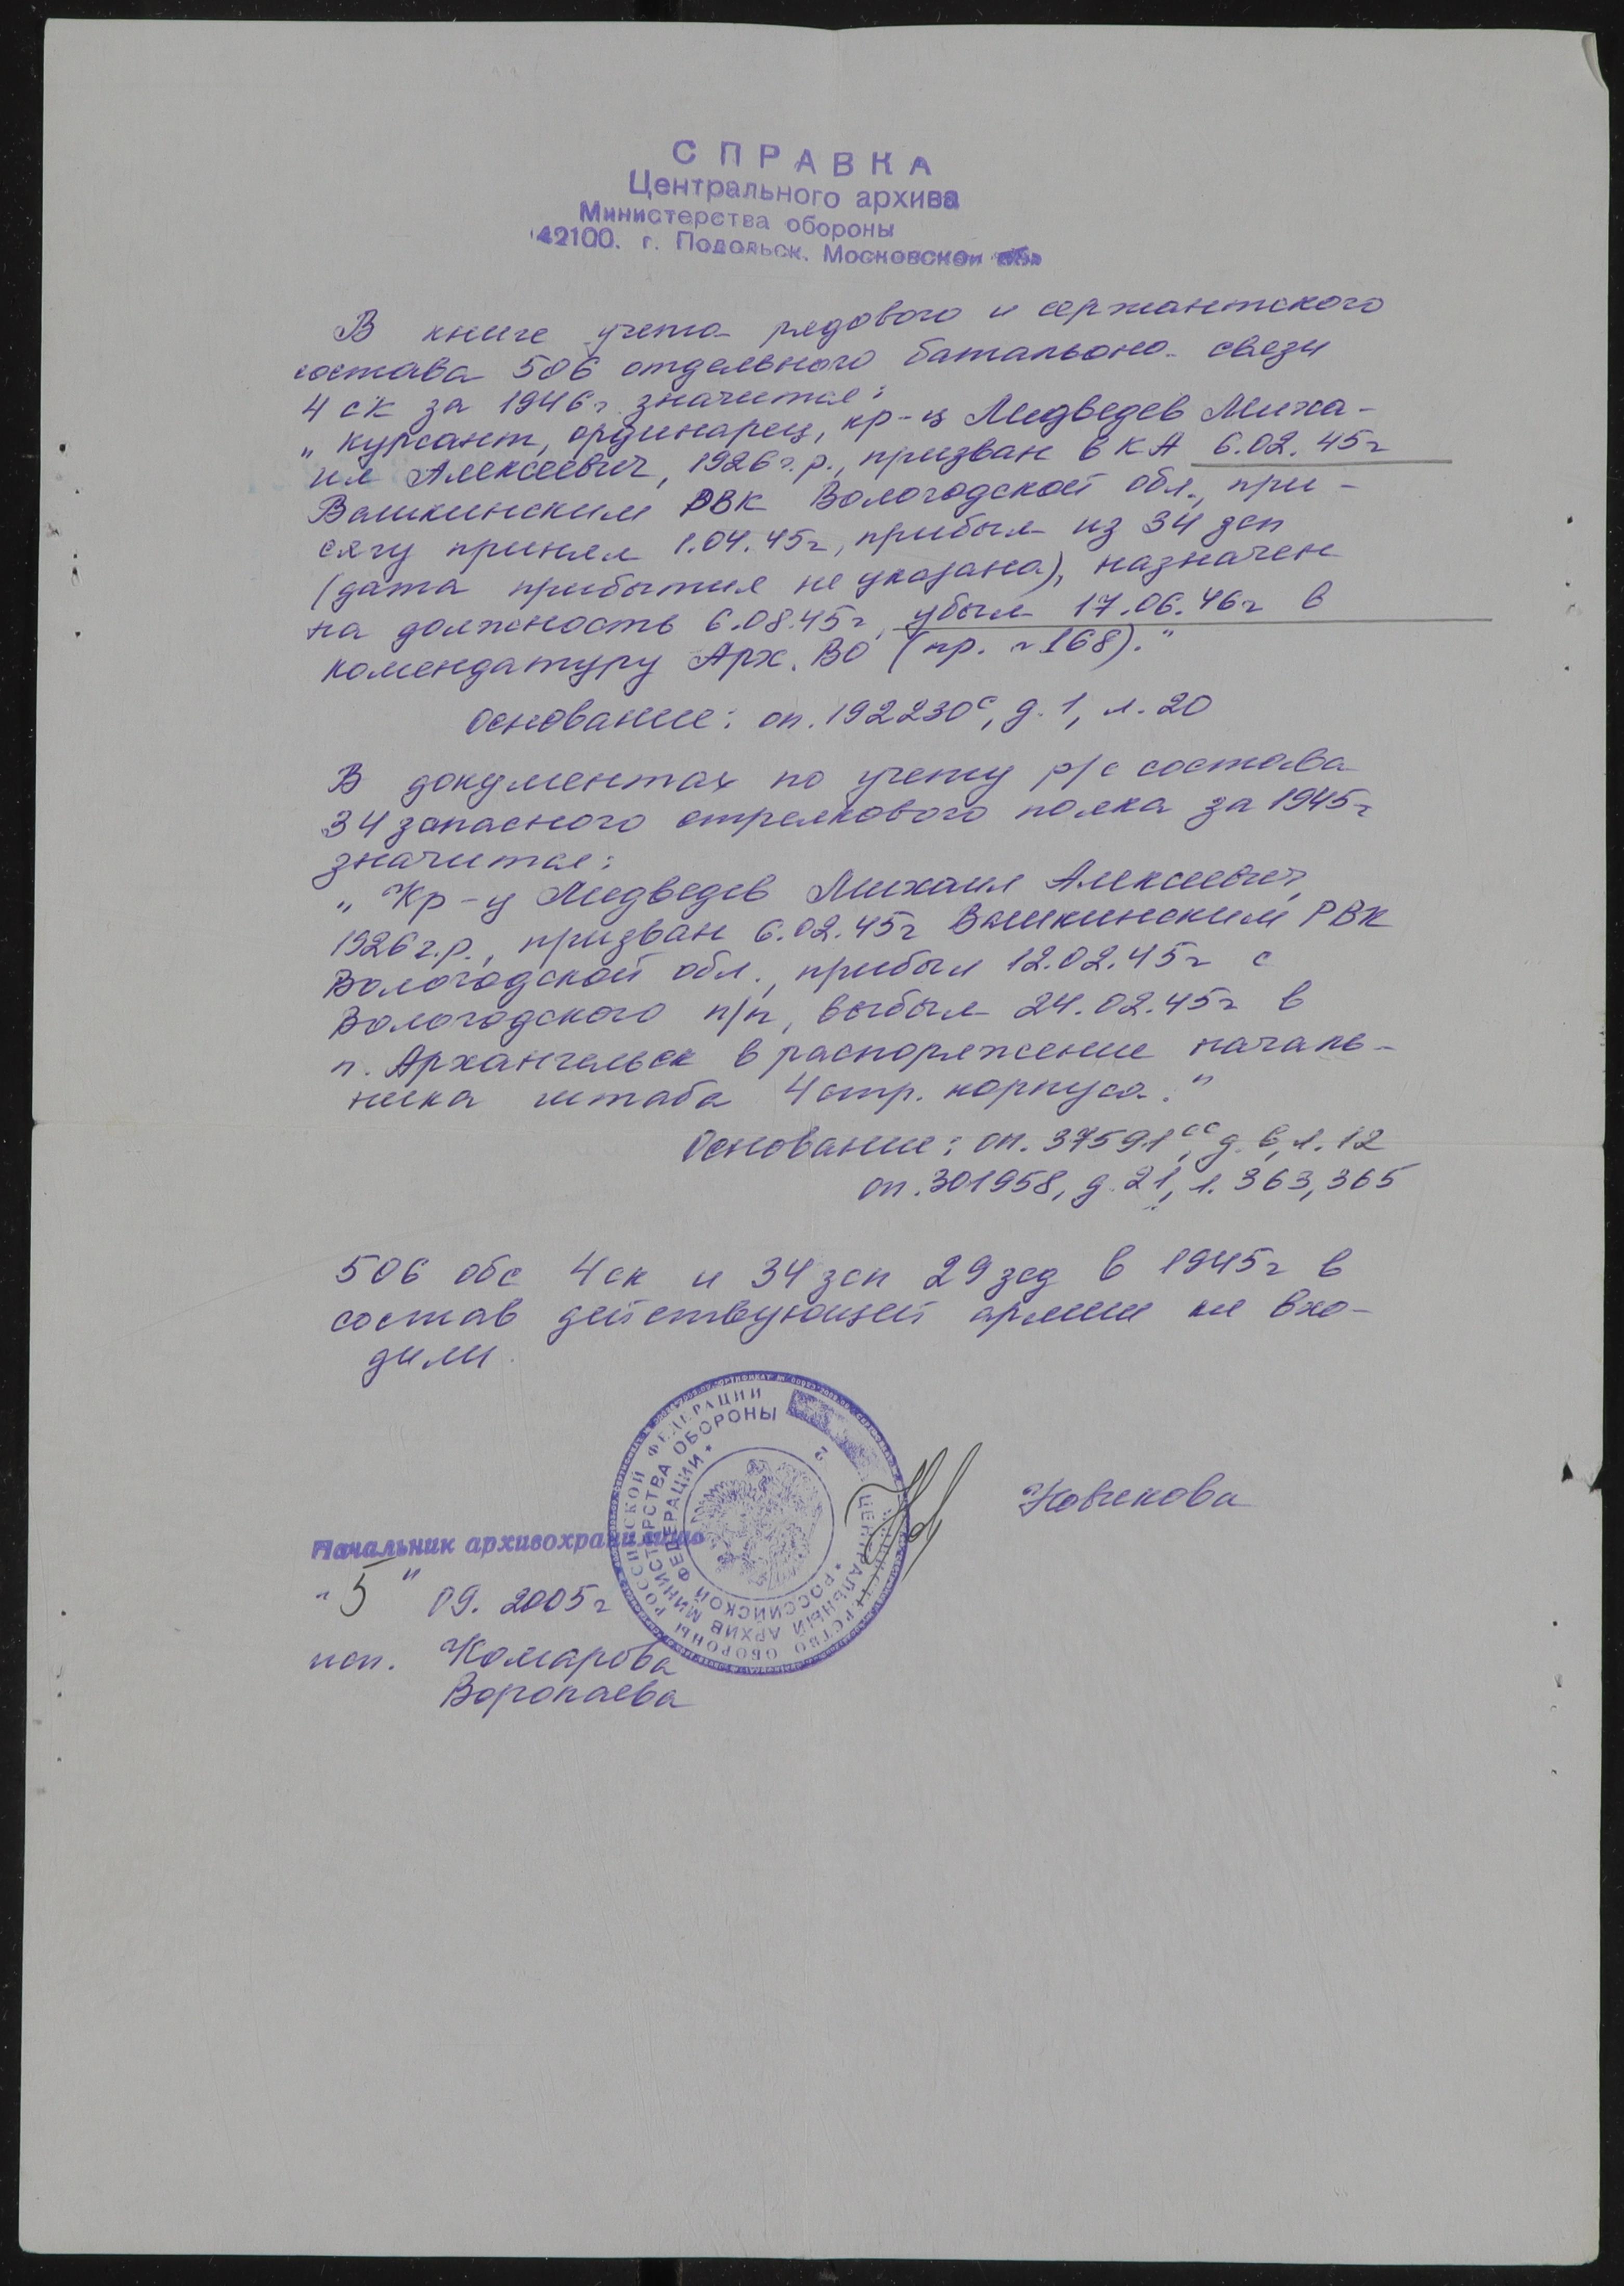 СПРАВКА
Центрального архива
Министерства обороны
142100. г. Подольск, Московской обл
В книге учета рядового и сержантского
состава 506 отдельного батальона связи
4 ск за 1946г. значится:
„Курсант, ординарец, кр-ц Медведев Миха-
ил Алексеевич, 1926г.р., призван в КА 6.02.45г
Вашкинским РВК Вологодской обл., при-
сягу принял 1.04.45г, прибыл из 34 зсп
(дата прибытия не указана), назначен
на должность 6.08.45г, убыл 17.06.46г в
комендатуру Арх. ВО (пр. №168)."
Основание: оп. 192230с, д. 1, л. 20
В документах по учету р/с состава
34 запасного стрелкового полка за 1945г
значится:
„Кр-ц Медведев Михаил Алексеевич,
1926г.р., призван 6.02.45г Вашкинским РВК
Вологодской обл., прибыл 12.02.45г с
Вологодского п/п, выбыл 24.02.45г в
г. Архангельск в распоряжение началь-
ника штаба 4 стр. корпуса."
Основание: оп. 37591сс, д. 6, л. 12
оп. 301958, д. 21, л. 363, 365
506 обс 4 ск и 34 зсп 29 зсд в 1945г в
состав действующей армии не вхо-
дили.
Начальник архивохранилища
Новикова
"5" 09. 2005г
исп. Комарова
Воропаева
МИНИСТЕРСТВО ОБОРОНЫ РОССИЙСКОЙ ФЕДЕРАЦИИ
ЦЕНТРАЛЬНЫЙ АРХИВ МИНИСТЕРСТВА ОБОРОНЫ
* РОССИЙСКОЙ ФЕДЕРАЦИИ *
2